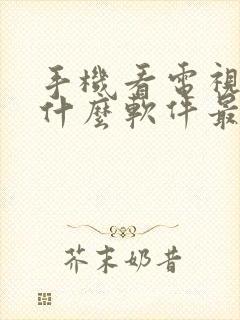 手機看電視
什麼軟件最
芥末奶昔